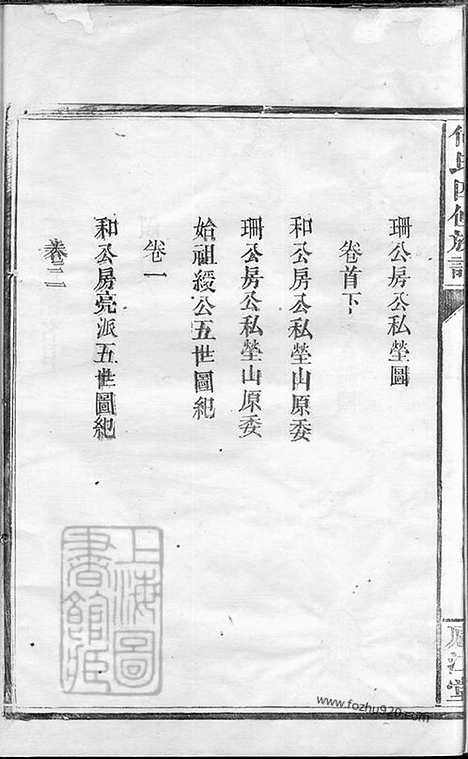 珊公房公私塋圖
卷首下
和公房公私塋山原委
珊公房公私塋山原委
始祖綬公五世圖紀
卷一
和公房亮派五世圖紀
卷二
氏四修族譜
堂
上海圖
書館藏
www.fozhu920.com